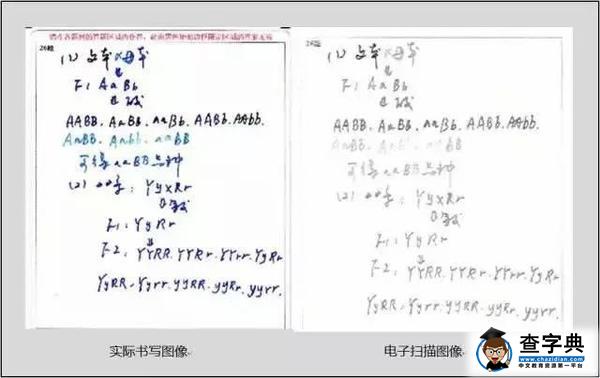 请在各题目的答题区域内作答，超出黑色矩形边框限定区域的答案无效
26题
(1) 父本×母本
F1 AaBb
自交
AABB. AaBB. aaBb. AABb. AAbb.
AaBB. Aabb. aaBB
可得aaBB品种
(2) 亲本: YyxRr
自交
F1: YyRr
F2: YYRR. YYRr. YYrr. YyRr
YyRR. Yyrr. yyRR. yyRr. yyrr.
实际书写图像
26题
(1) 父本×母本
F1 AaBb
自交
AABB. AaBB. aaBb. AABb. AAbb.
AaBB. Aabb. aaBB
可得aaBB品种
(2) 亲本: YyxRr
自交
F1: YyRr
F2: YYRR. YYRr. YYrr. YyRr
YyRR. Yyrr. yyRR. yyRr. yyrr.
电子扫描图像
查字典
www.chazidian.com
中文教育资源第一平台